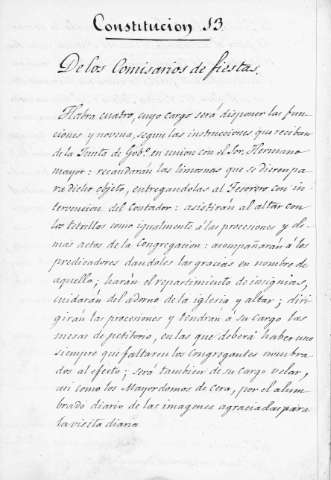 Constitucion 13.
De los Comisarios de fiestas.
Habra cuatro, cuyo cargo será disponer las fun-
ciones y novena, segun las instrucciones que reciban
de la Junta de Gobº. en union con el Sor. Hermano
mayor: recaudarán las limosnas que se dieren pa-
ra dicho objeto, entregandolas al Tesorero con in-
tervencion del Contador: asistirán al altar con
los cetrillos como igualmente á las procesiones y de-
mas actos de la Congregacion: acompañarán á los
predicadores dandoles las gracias en nombre de
aquella; harán el repartimiento de insignias,
cuidarán del adorno de la iglesia y altar; diri-
girán las procesiones y tendrán á su cargo las
mesas de petitorio, en las que deberá haber uno
siempre que faltaren los Congregantes nombra-
dos al efecto; será tambien de su cargo velar,
asi como los Mayordomos de Cera, por el alum-
brado diario de las imagenes agraciadas para
la visita diaria